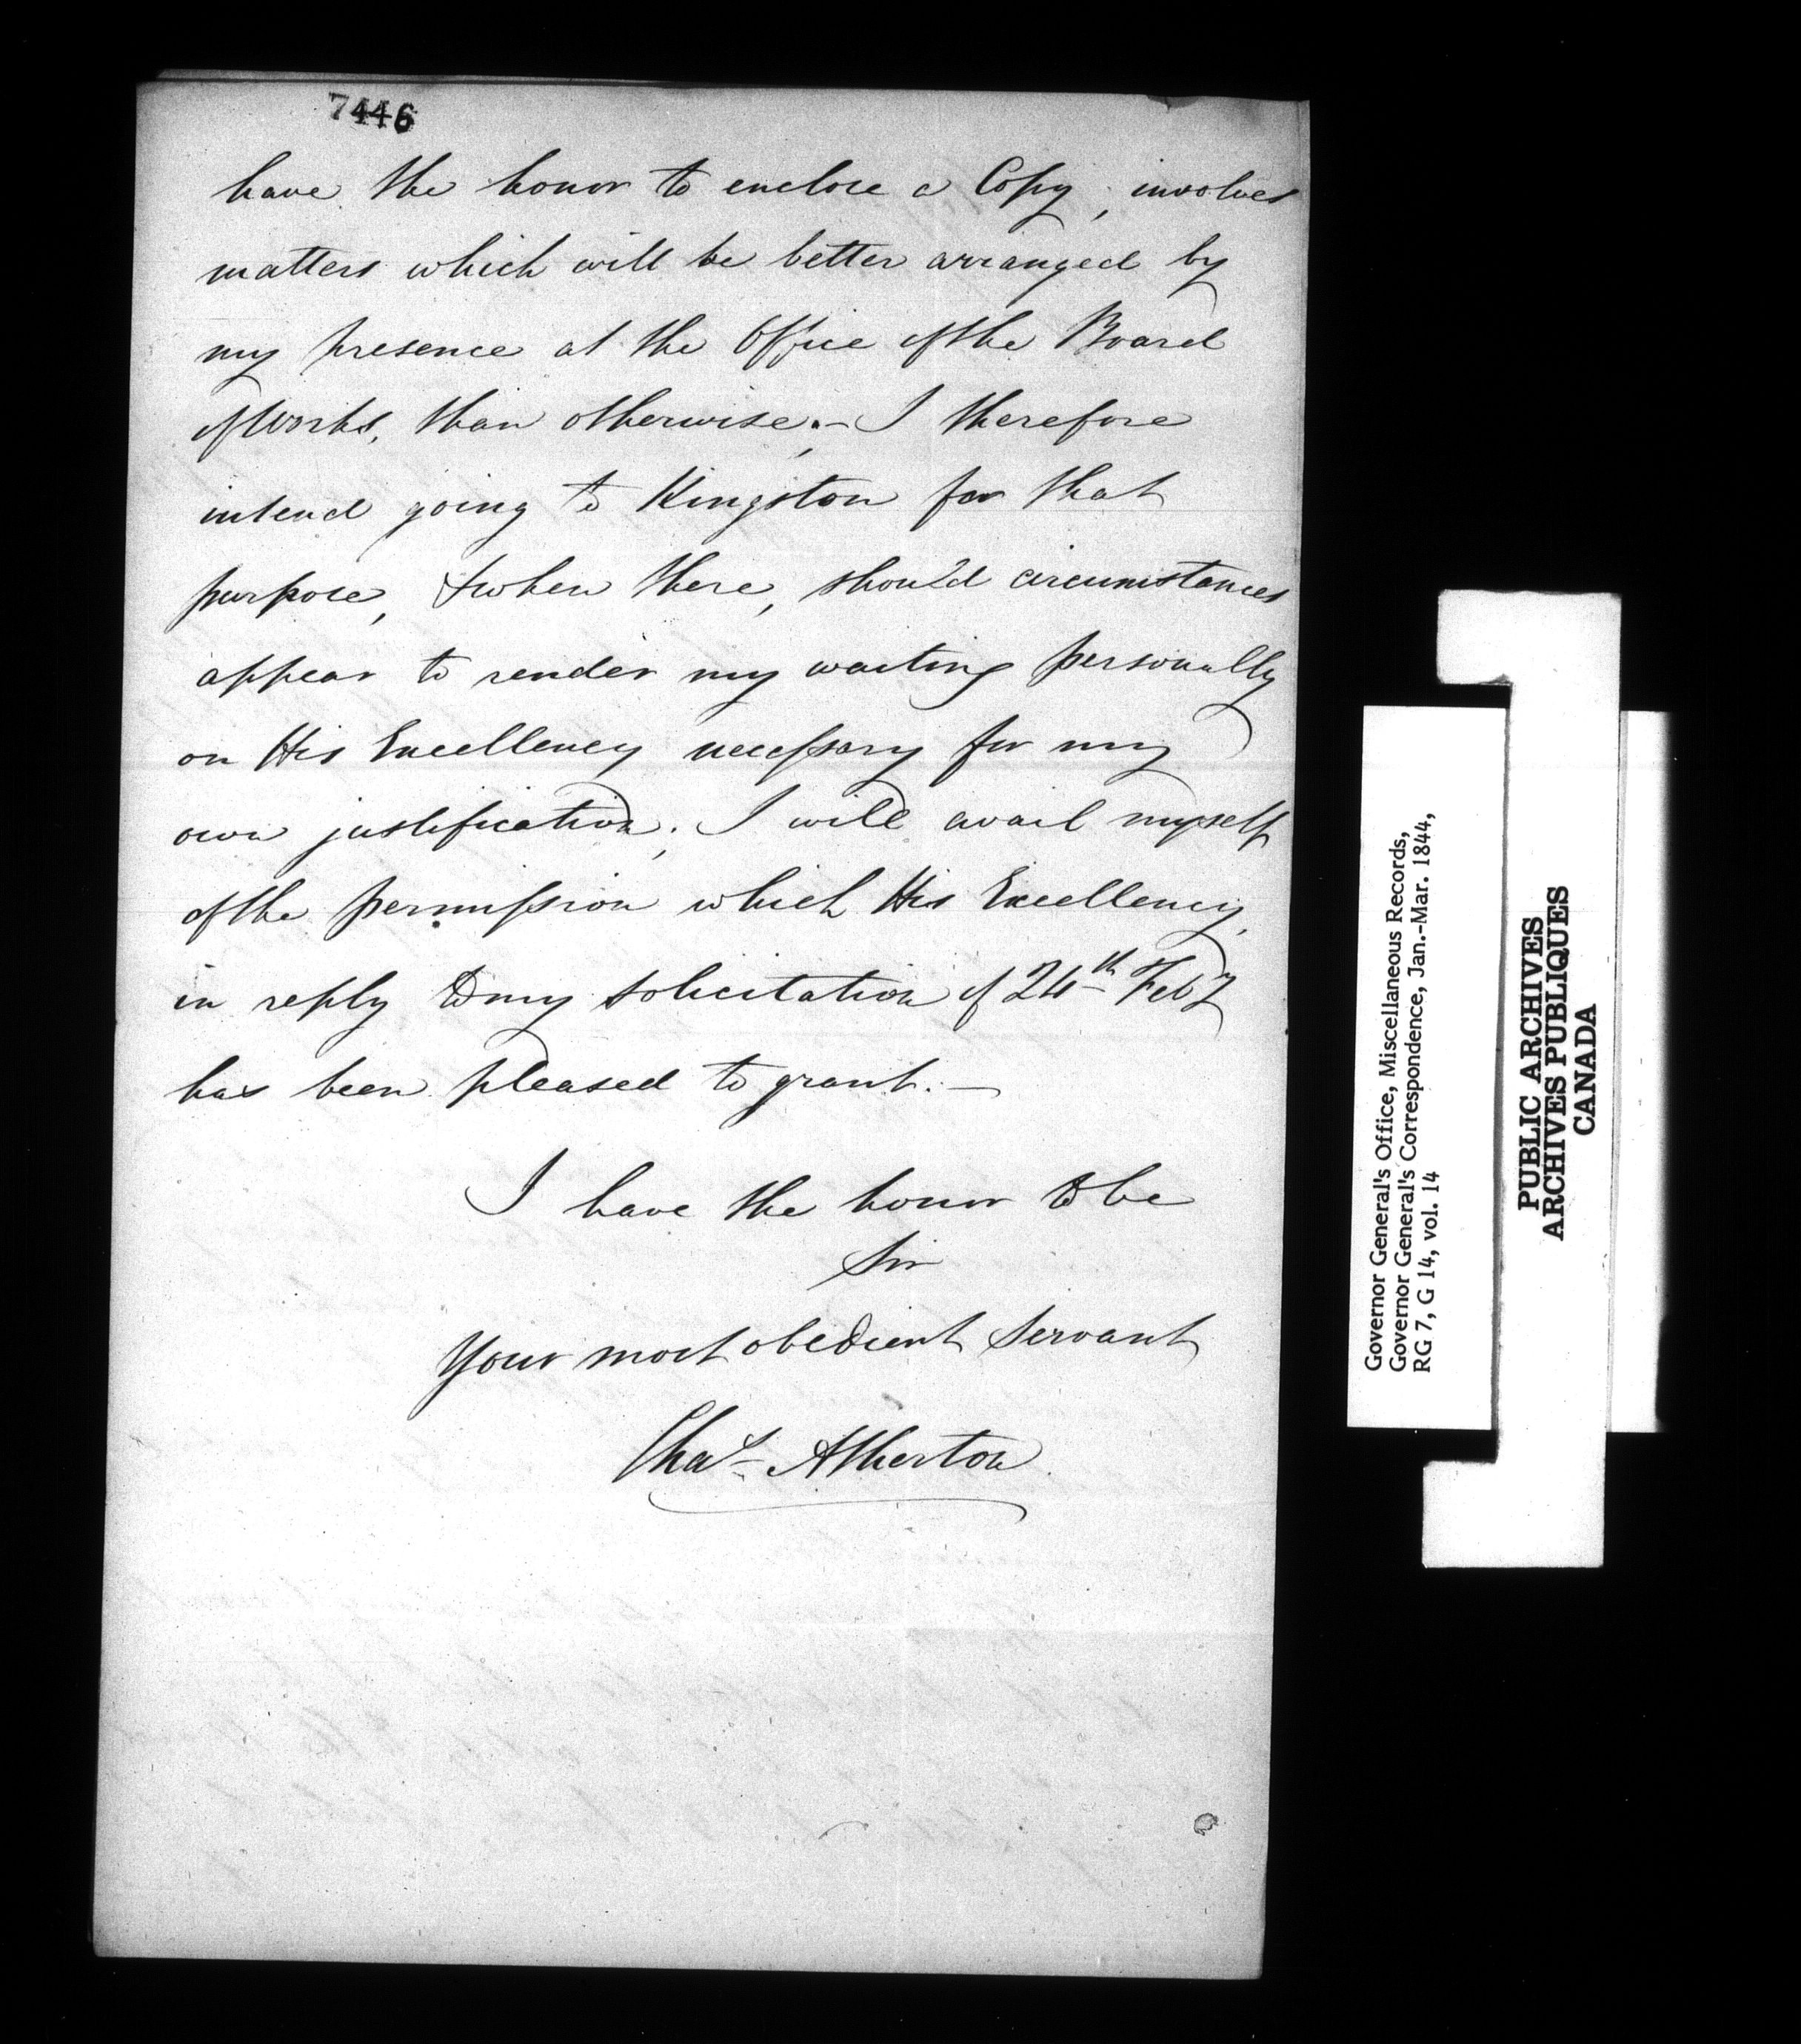 7446
have the honor to enclose a Copy, involves
matters which will be better arranged by
my presence at the Office of the Board
of Works, than otherwise;– I therefore
intend going to Kingston for that
purpose, & when there, should circumstances
appear to render my waiting personally
on His Excellency necessary for my
own justification; I will avail myself
of the permission which His Excellency,
in reply to my solicitation of 24th Feby
has been pleased to grant.—
I have the honor to be
Sir
Your most obedient Servant
Chas Atherton
Governor General's Office, Miscellaneous Records,
Governor General's Correspondence, Jan.-Mar. 1844,
RG 7, G 14, vol. 14
PUBLIC ARCHIVES
ARCHIVES PUBLIQUES
CANADA